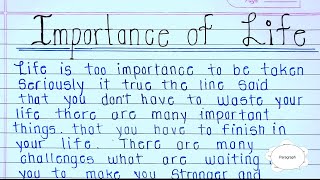 Page
Importance of Life
Life is too importance to be taken
Seriously it true the line said
that you don't have to waste your
life there are many important
things. that you have to finish in
your life. There are many
challenges what are waiting
you to make you stronger and
Paragraph